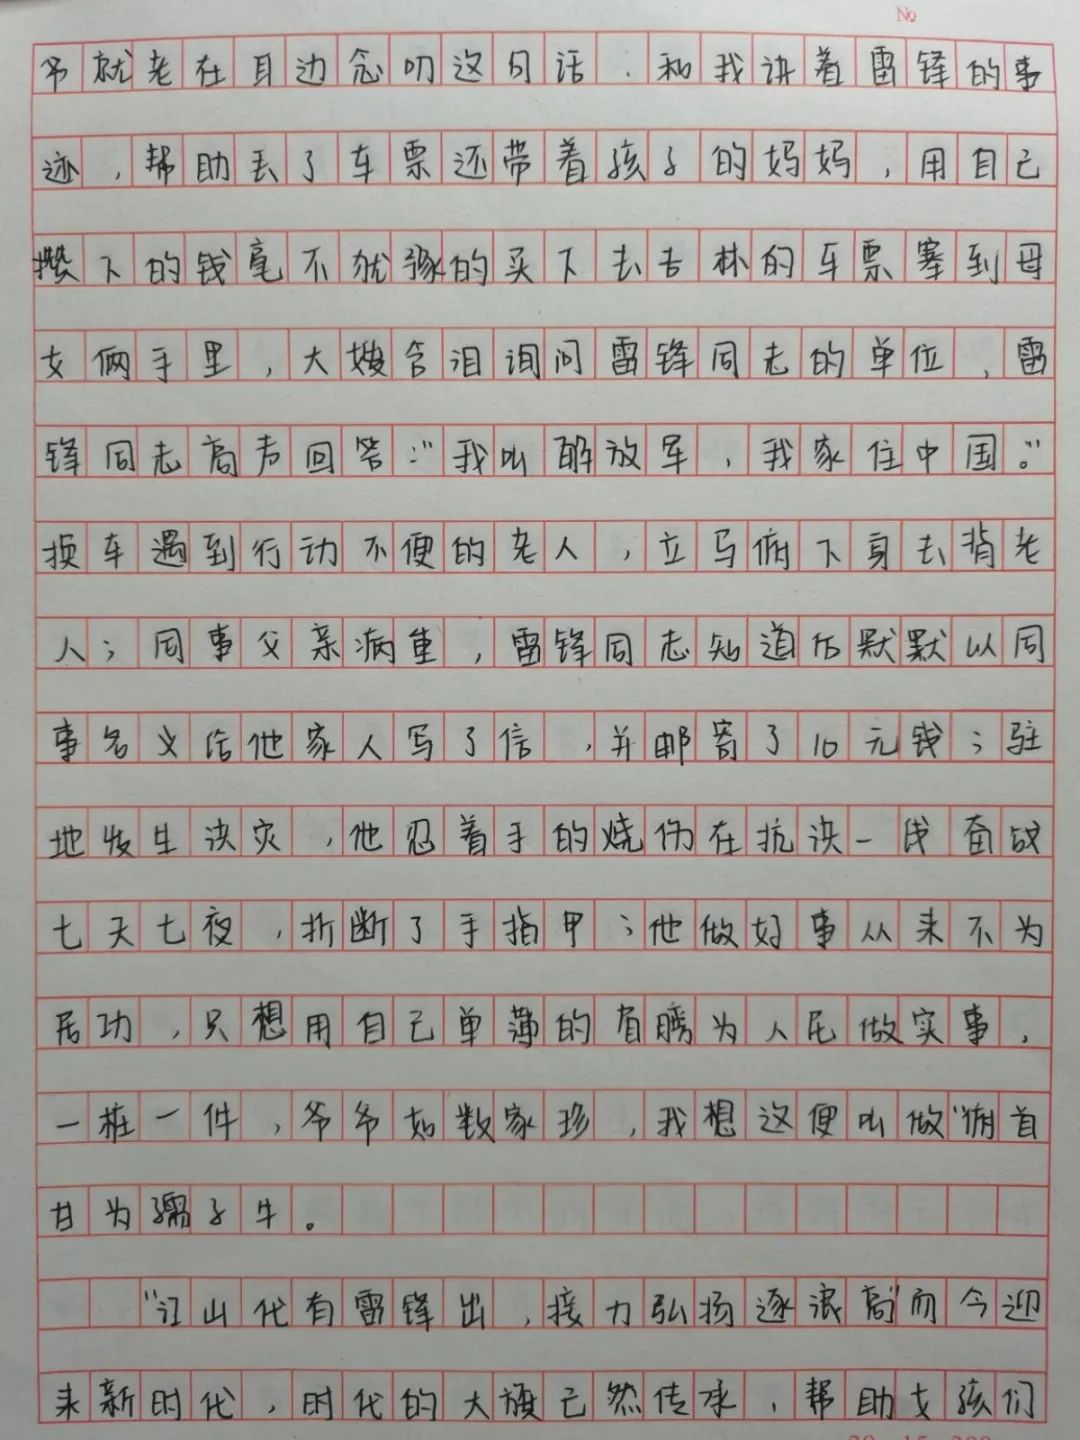 No
爷就老在耳边念叨这句话,和我讲着雷锋的事
迹,帮助丢了车票还带着孩子的妈妈,用自己
攒下的钱毫不犹豫的买下去吉林的车票塞到母
女俩手里,大嫂含泪询问雷锋同志的单位,雷
锋同志高声回答:“我叫解放军,我家住中国。”
换车遇到行动不便的老人,立马俯下身去背老
人;同事父亲病重,雷锋同志知道后默默以同
事名义给他家人写了信,并邮寄了10元钱;驻
地发生决灾,他忍着手的烧伤在抗决一线奋战
七天七夜,折断了手指甲;他做好事从来不为
居功,只想用自己单薄的肩膀为人民做实事,
一桩一件,爷爷如数家珍,我想这便叫做“俯首
甘为孺子牛。
“江山代有雷锋出,接力弘扬逐浪高”而今迎
来新时代,时代的大旗已然传承,帮助女孩们